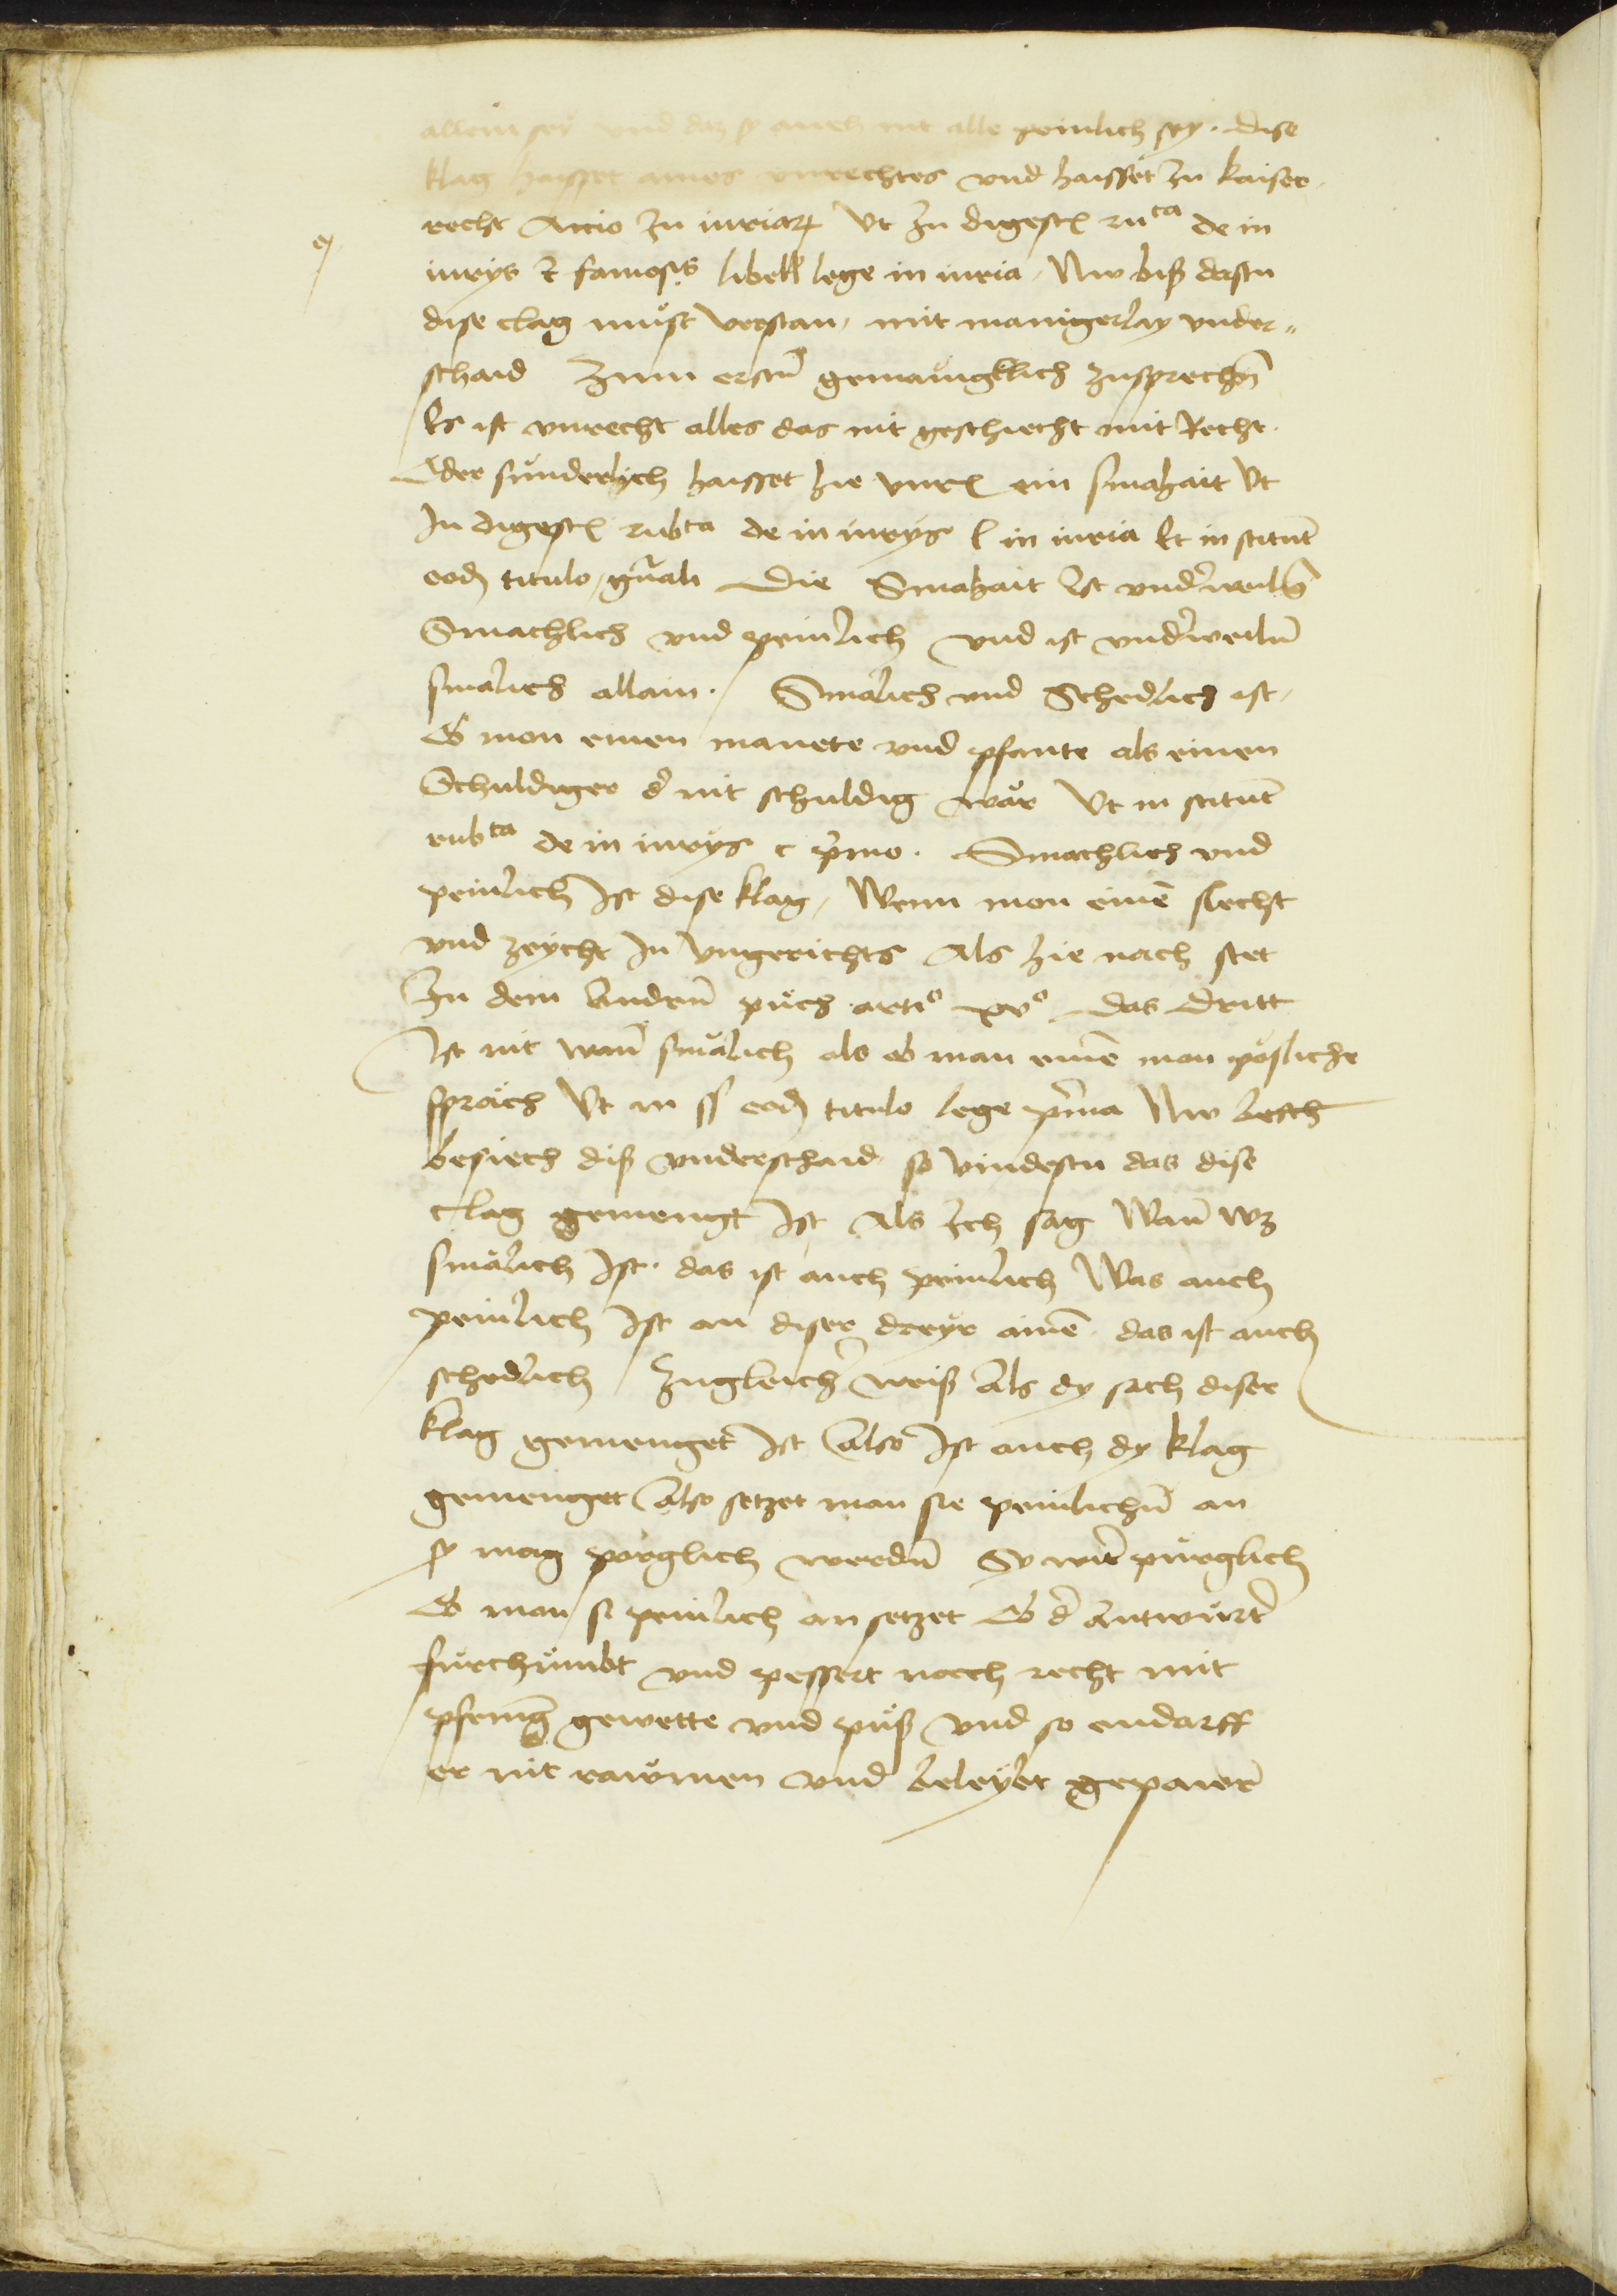 allein seÿ vnd daz sy auch nit alle peinlich sey · dise
klag haisset aines vnrechtes vnd haisset Jn kaiser
recht Accio Jn iuriaꝝ Vt Jn digestꝭ ruᶜᵃ de in
iurÿs et famosis libell lege in iuria / Nw biß dastu
dise clag müst verstan / mit manigerlay vnder=
schaid Zum erstn̄ gemainigklich zusprechn̄
Es ist vnrecht alles das nit geschiecht mit Recht ·
Oder sunderlich haisset hie vnrꝭ ein smahait Vt
Jn digestꝭ rubᶜᵃ de in iurÿs l in iuria Et institut̄
eod titulo / gn̄ali Die Smahait Ist vnd̄weiln̄
Smachlich vnd peinlich vnd ist vnd̄weiln̄
smalich allain · / Smalich vnd Schedlich ist /
Ob mon einen manete vnd pfante als einen
Schuldiger d̄ nit schuldig wär Vt institut̄
rubᶜᵃ de in iurÿs c pr̄mo · Smachlich vnd
peinlich Ist dise klag / Wenn mon einē slecht
vnd zeycht Jn Vngerichts Als hie nach stet
Jn dem Andern̄ püch arti° xv° das dritt
Ist nit wan̄ smälich als ob man einē mon pösliche
spräch Vt in ff eod titulo lege pr̄ma Nw besech
besiech diß vnderschaid so vindestu das dise
clag gemengt Ist Als Ich sag Wan̄ wz
smälich Ist · das ist auch peinlich Was auch
peinlich Ist an diser dreyr ainē das ist auch
schedlich / Zugleich̄ weiß Als dy sach diser
klag gemenget Ist Also Ist auch dy klag
gemenget Also setzet man sie peinlichn̄ an
sy mag pörglich werdn̄ Sy wirt pürglich
Ob mon si peinlich an setzet Ob d̄ Antwürt̄
fürchümbt vnd pessert noch recht mit
pfening gewette vnd püß vnd so endarff
er nit rawmen vnd beleybt gepawr̄